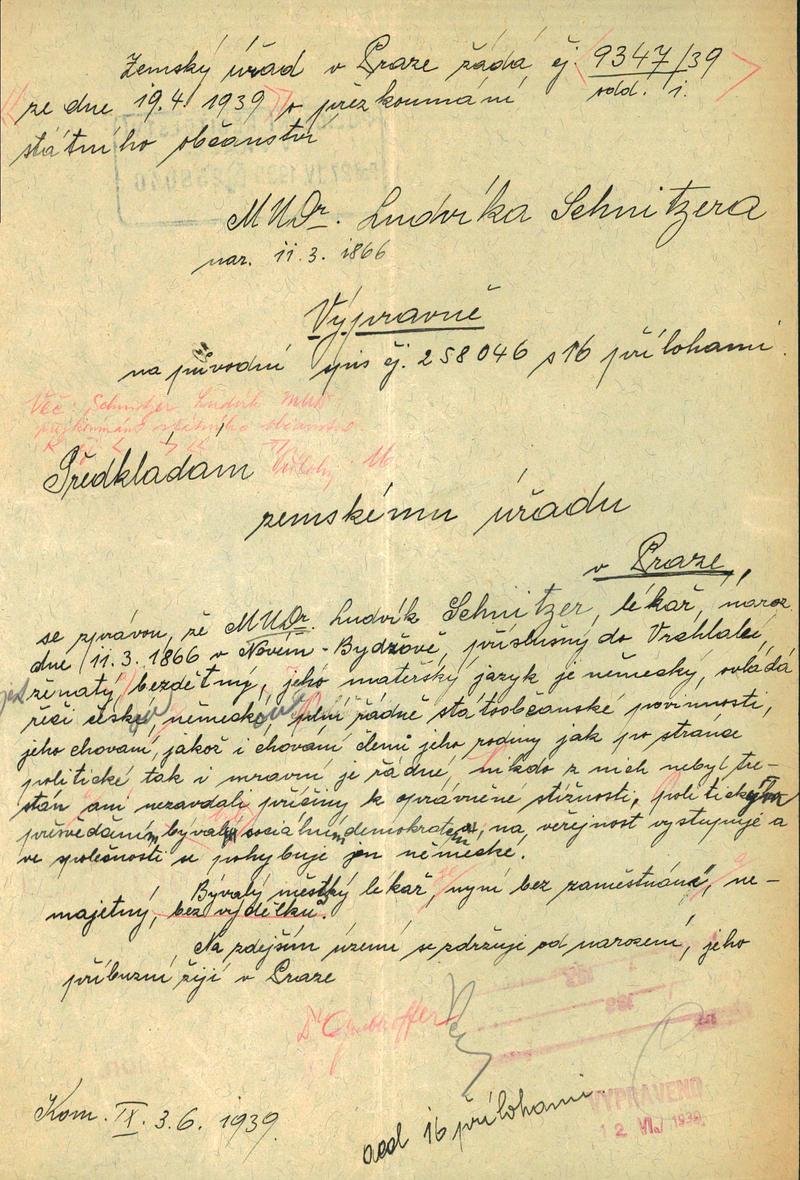 Zemský úřad v Praze žádá čj. 9347/39
odd. i.
ze dne 19.4. 1939 o přezkoumání
státního občanství
MUDr. Ludvíka Schnitzera
nar. 11.3. 1866
Výpravně
na původní spis čj. 258046 s 16 přílohami.
Věc: Schnitzer Ludvík MUDr
přezkoumání státního občanství.
Předkládám Přílohy 16
zemskému úřadu
v Praze,
se zprávou, že MUDr. Ludvík Schnitzer, lékař, naroz.
dne 11.3. 1866 v Novém-Bydžově, příslušný do Vrchlabí,
jest ženatý, bezdětný, jeho mateřský jazyk je německý, ovládá
řeči českou, německou, plní řádně státoobčanské povinnosti,
jeho chování, jakož i chování členů jeho rodiny jak po stránce
politické tak i mravní je řádné, nikdo z nich nebyl tre-
stán ani nezavdali příčiny k oprávněné stížnosti, politickým
přesvědčením býval sociálním demokratem, na veřejnost vystupuje a
ve společnosti se pohybuje jen německé.
Bývalý městský lékař, nyní bez zaměstnání, ne-
majetný, bez výdělku.
Na zdejším území se zdržuje od narození, jeho
příbuzní žijí v Praze
Kom. IX. 3.6. 1939.
acd 16 přílohami
VYPRAVENO
12 VI. 1939